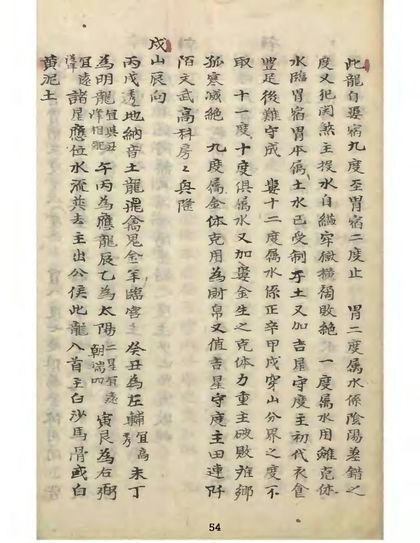 此龍自婁宿九度至胃宿二度止　胃二度属水係陰陽差錯之
度又犯関煞主投水自縊穿窬擴獨敗絶　一度属水用雖克体
水臨胃宿胃本偽土水已受制于土又加吉星守度主初代衣食
豊足後難守成　婁十二度属水係正辛甲戌穿山分界之度不
取　十一度十度俱属水又加婁金生之克体力重主破敗離鄉
孤寒滅絶　九度属金体克用為財帛又值吉星守度主田連阡
陌文武高科房房興隆
戌山辰向
丙戌透地納音土龍飛禽鬼金羊臨宫　癸丑為左輔宜高秀未丁
為明龍宜與丑　相配　午丙為應龍辰乙為太陽二星宜遠朝 四　寅艮為右弼
宜遠諸星應位水流巽去主出公侯此龍入首主白沙馬骨或白
黄泥土
54